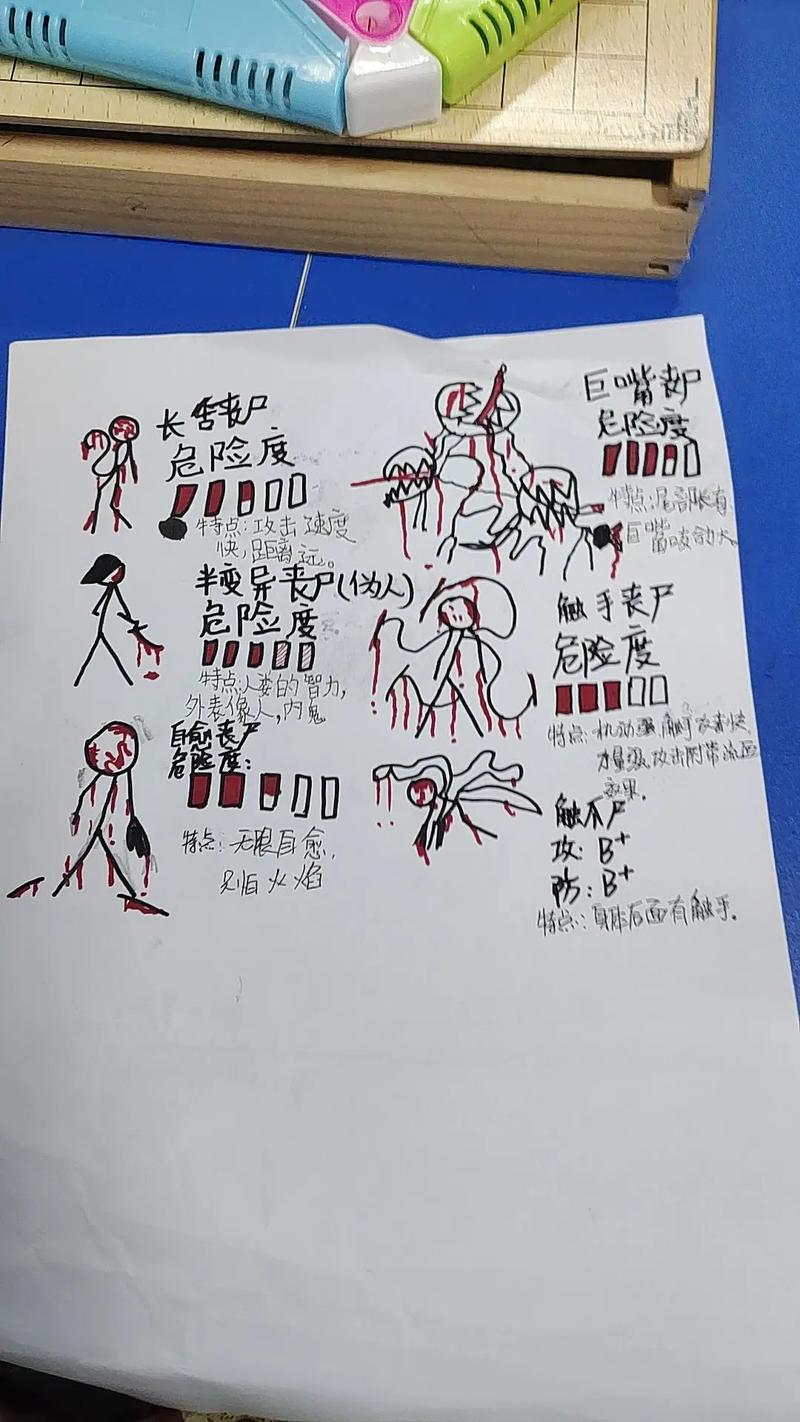 长舌丧尸
危险度
特点：攻击速度
快，距离远。
半变异丧尸(伪人)
危险度
特点：人类的智力，
外表像人，内鬼
自愈丧尸
危险度：
特点：无限自愈，
别怕火焰
巨嘴丧尸
危险度
特点：尾部长有
巨嘴咬合力大。
触手丧尸
危险度
特点：机动强，触手攻击快，
力量强，攻击附带流血
效果。
触不尸
攻：B+
防：B+
特点：身体后面有触手。